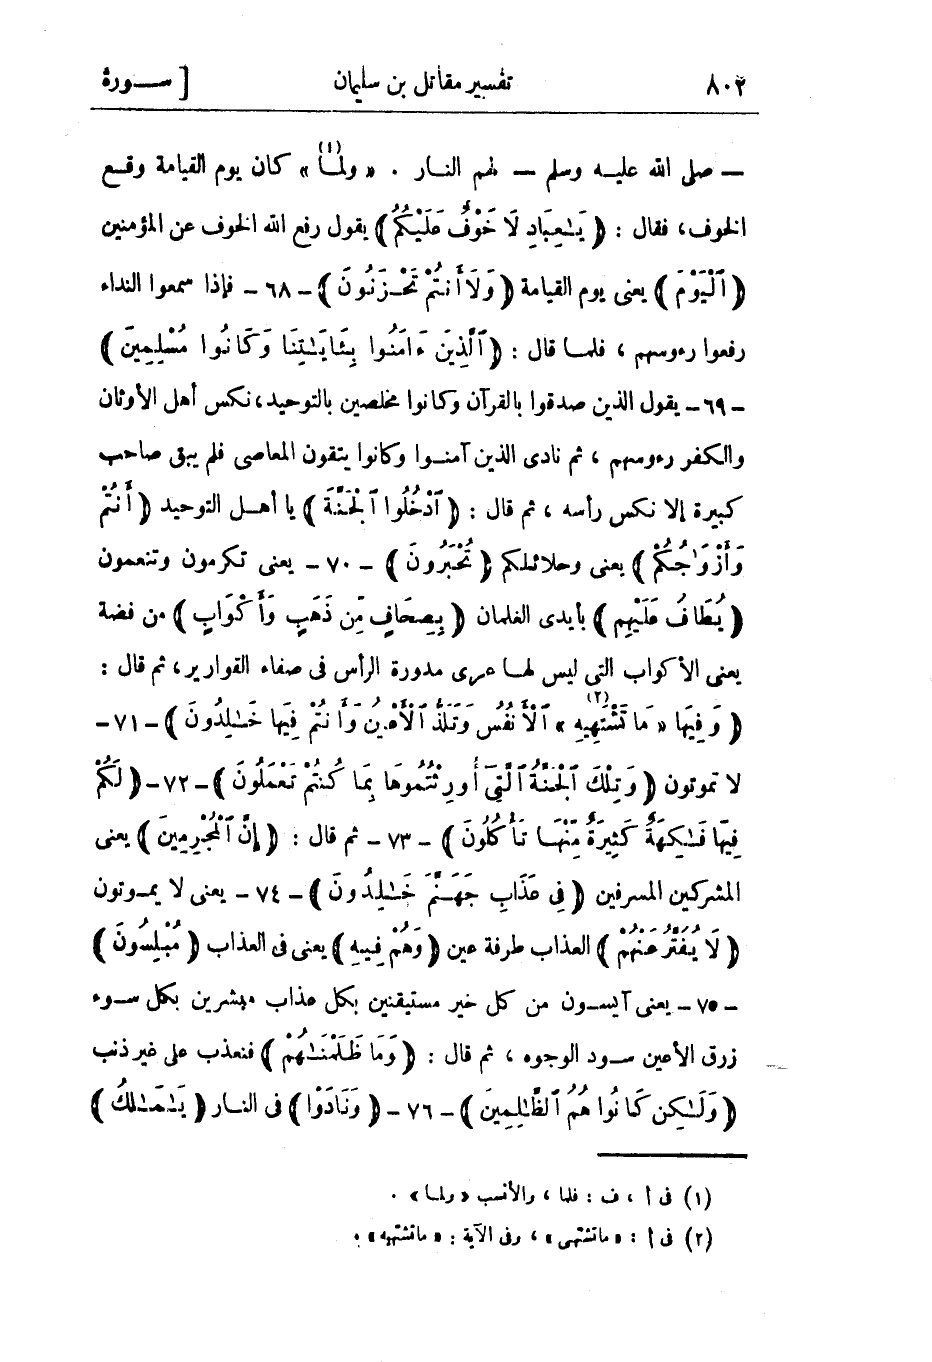 ٨٠٢ تفسير مقاتل بن سليمان [ ســـورة
— صلى الله عليه وسلم — لهم النار . « ولما(١) » كان يوم القيامة وقع
الخوف، فقال : ﴿ يَـٰعِبَادِ لَا خَوْفٌ عَلَيْكُمُ ﴾ يقول رفع الله الخوف عن المؤمنين
﴿ ٱلْيَوْمَ ﴾ يعنى يوم القيامة ﴿ وَلَا أَنتُمْ تَحْزَنُونَ ﴾ – ٦٨ – فإذا سمعوا النداء
رفعوا رءوسهم ، فلما قال : ﴿ ٱلَّذِينَ ءَامَنُوا بِـَٔايَـٰتِنَا وَكَانُوا مُسْلِمِينَ ﴾
– ٦٩ – يقول الذين صدقوا بالقرآن وكانوا مخلصين بالتوحيد، نكس أهل الأوثان
والكفر رءوسهم ، ثم نادى الذين آمنوا وكانوا يتقون المعاصى فلم يبق صاحب
كبيرة إلا نكس رأسه ، ثم قال : ﴿ ٱدْخُلُوا ٱلْجَنَّةَ ﴾ يا أهل التوحيد ﴿ أَنتُمْ
وَأَزْوَٰجُكُمْ ﴾ يعنى وحلائلكم ﴿ تُحْبَرُونَ ﴾ – ٧٠ – يعنى تكرمون وتنعمون
﴿ يُطَافُ عَلَيْهِم ﴾ بأيدى الغلمان ﴿ بِصِحَافٍ مِّن ذَهَبٍ وَأَكْوَابٍ ﴾ من فضة
يعنى الأكواب التى ليس لها عرى مدورة الرأس فى صفاء القوارير، ثم قال :
﴿ وَفِيهَا « مَا تَشْتَهِيهِ(٢) » ٱلْأَنفُسُ وَتَلَذُّ ٱلْأَعْيُنُ وَأَنتُمْ فِيهَا خَـٰلِدُونَ ﴾ – ٧١ –
لا تموتون ﴿ وَتِلْكَ ٱلْجَنَّةُ ٱلَّتِىٓ أُورِثْتُمُوهَا بِمَا كُنتُمْ تَعْمَلُونَ ﴾ – ٧٢ – ﴿ لَكُمْ
فِيهَا فَـٰكِهَةٌ كَثِيرَةٌ مِّنْهَا تَأْكُلُونَ ﴾ – ٧٣ – ثم قال : ﴿ إِنَّ ٱلْمُجْرِمِينَ ﴾ يعنى
المشركين المسرفين ﴿ فِى عَذَابِ جَهَنَّمَ خَـٰلِدُونَ ﴾ – ٧٤ – يعنى لا يموتون
﴿ لَا يُفَتَّرُ عَنْهُمْ ﴾ العذاب طرفة عين ﴿ وَهُمْ فِيهِ ﴾ يعنى فى العذاب ﴿ مُبْلِسُونَ ﴾
– ٧٥ – يعنى آيسون من كل خير مستيقنين بكل عذاب مبشرين بكل سوء
زرق الأعين سود الوجوه ، ثم قال : ﴿ وَمَا ظَلَمْنَـٰهُمْ ﴾ فنعذب على غير ذنب
﴿ وَلَـٰكِن كَانُوا هُمُ ٱلظَّـٰلِمِينَ ﴾ – ٧٦ – ﴿ وَنَادَوْا ﴾ فى النار ﴿ يَـٰمَـٰلِكُ ﴾
(١) فى أ ، ف : فلما ، والأنسب « ولما » .
(٢) فى أ : « ما تشتهى » ، وفى الآية : « ما تشتهيه » .